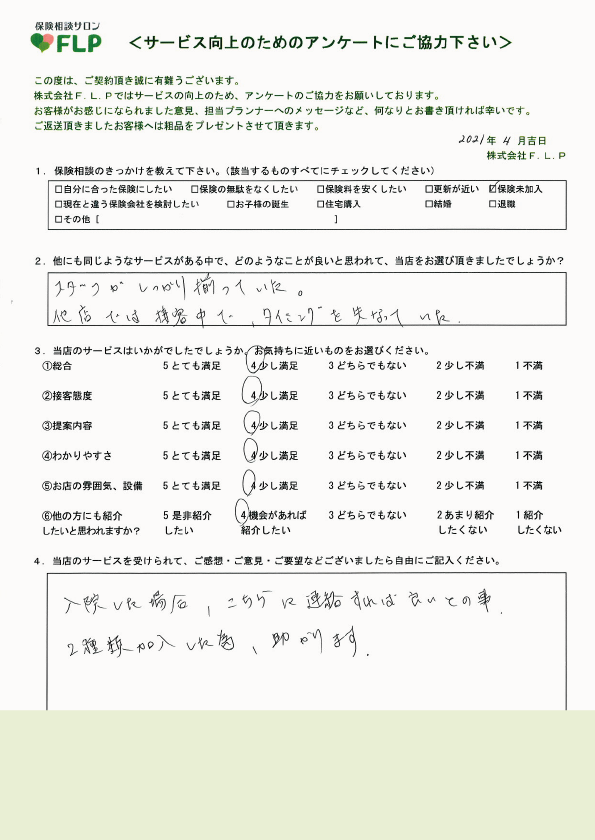 保険相談サロン
FLP
＜サービス向上のためのアンケートにご協力下さい＞
この度は、ご契約頂き誠に有難うございます。
株式会社Ｆ．Ｌ．Ｐではサービスの向上のため、アンケートのご協力をお願いしております。
お客様がお感じになられました意見、担当プランナーへのメッセージなど、何なりとお書き頂ければ幸いです。
ご返送頂きましたお客様へは粗品をプレゼントさせて頂きます。
2021年 4 月吉日
株式会社Ｆ．Ｌ．Ｐ
１．保険相談のきっかけを教えて下さい。（該当するものすべてにチェックしてください）
□自分に合った保険にしたい □保険の無駄をなくしたい □保険料を安くしたい □更新が近い ☑保険未加入
□現在と違う保険会社を検討したい □お子様の誕生 □住宅購入 □結婚 □退職
□その他［ ］
２．他にも同じようなサービスがある中で、どのようなことが良いと思われて、当店をお選び頂きましたでしょうか？
スタッフがしっかり揃っていた。
他店では接客中で、タイミングを失なっていた．
３．当店のサービスはいかがでしたでしょうか。お気持ちに近いものをお選びください。
①総合 ５とても満足 ４少し満足 ３どちらでもない ２少し不満 １不満
②接客態度 ５とても満足 ４少し満足 ３どちらでもない ２少し不満 １不満
③提案内容 ５とても満足 ４少し満足 ３どちらでもない ２少し不満 １不満
④わかりやすさ ５とても満足 ４少し満足 ３どちらでもない ２少し不満 １不満
⑤お店の雰囲気、設備 ５とても満足 ４少し満足 ３どちらでもない ２少し不満 １不満
⑥他の方にも紹介 ５是非紹介 ４機会があれば ３どちらでもない ２あまり紹介 １紹介
したいと思われますか？ したい 紹介したい したくない したくない
４．当店のサービスを受けられて、ご感想・ご意見・ご要望などございましたら自由にご記入ください。
入院した場合、こちらに連絡すれば良いとの事．
2種類加入した為、助かります．